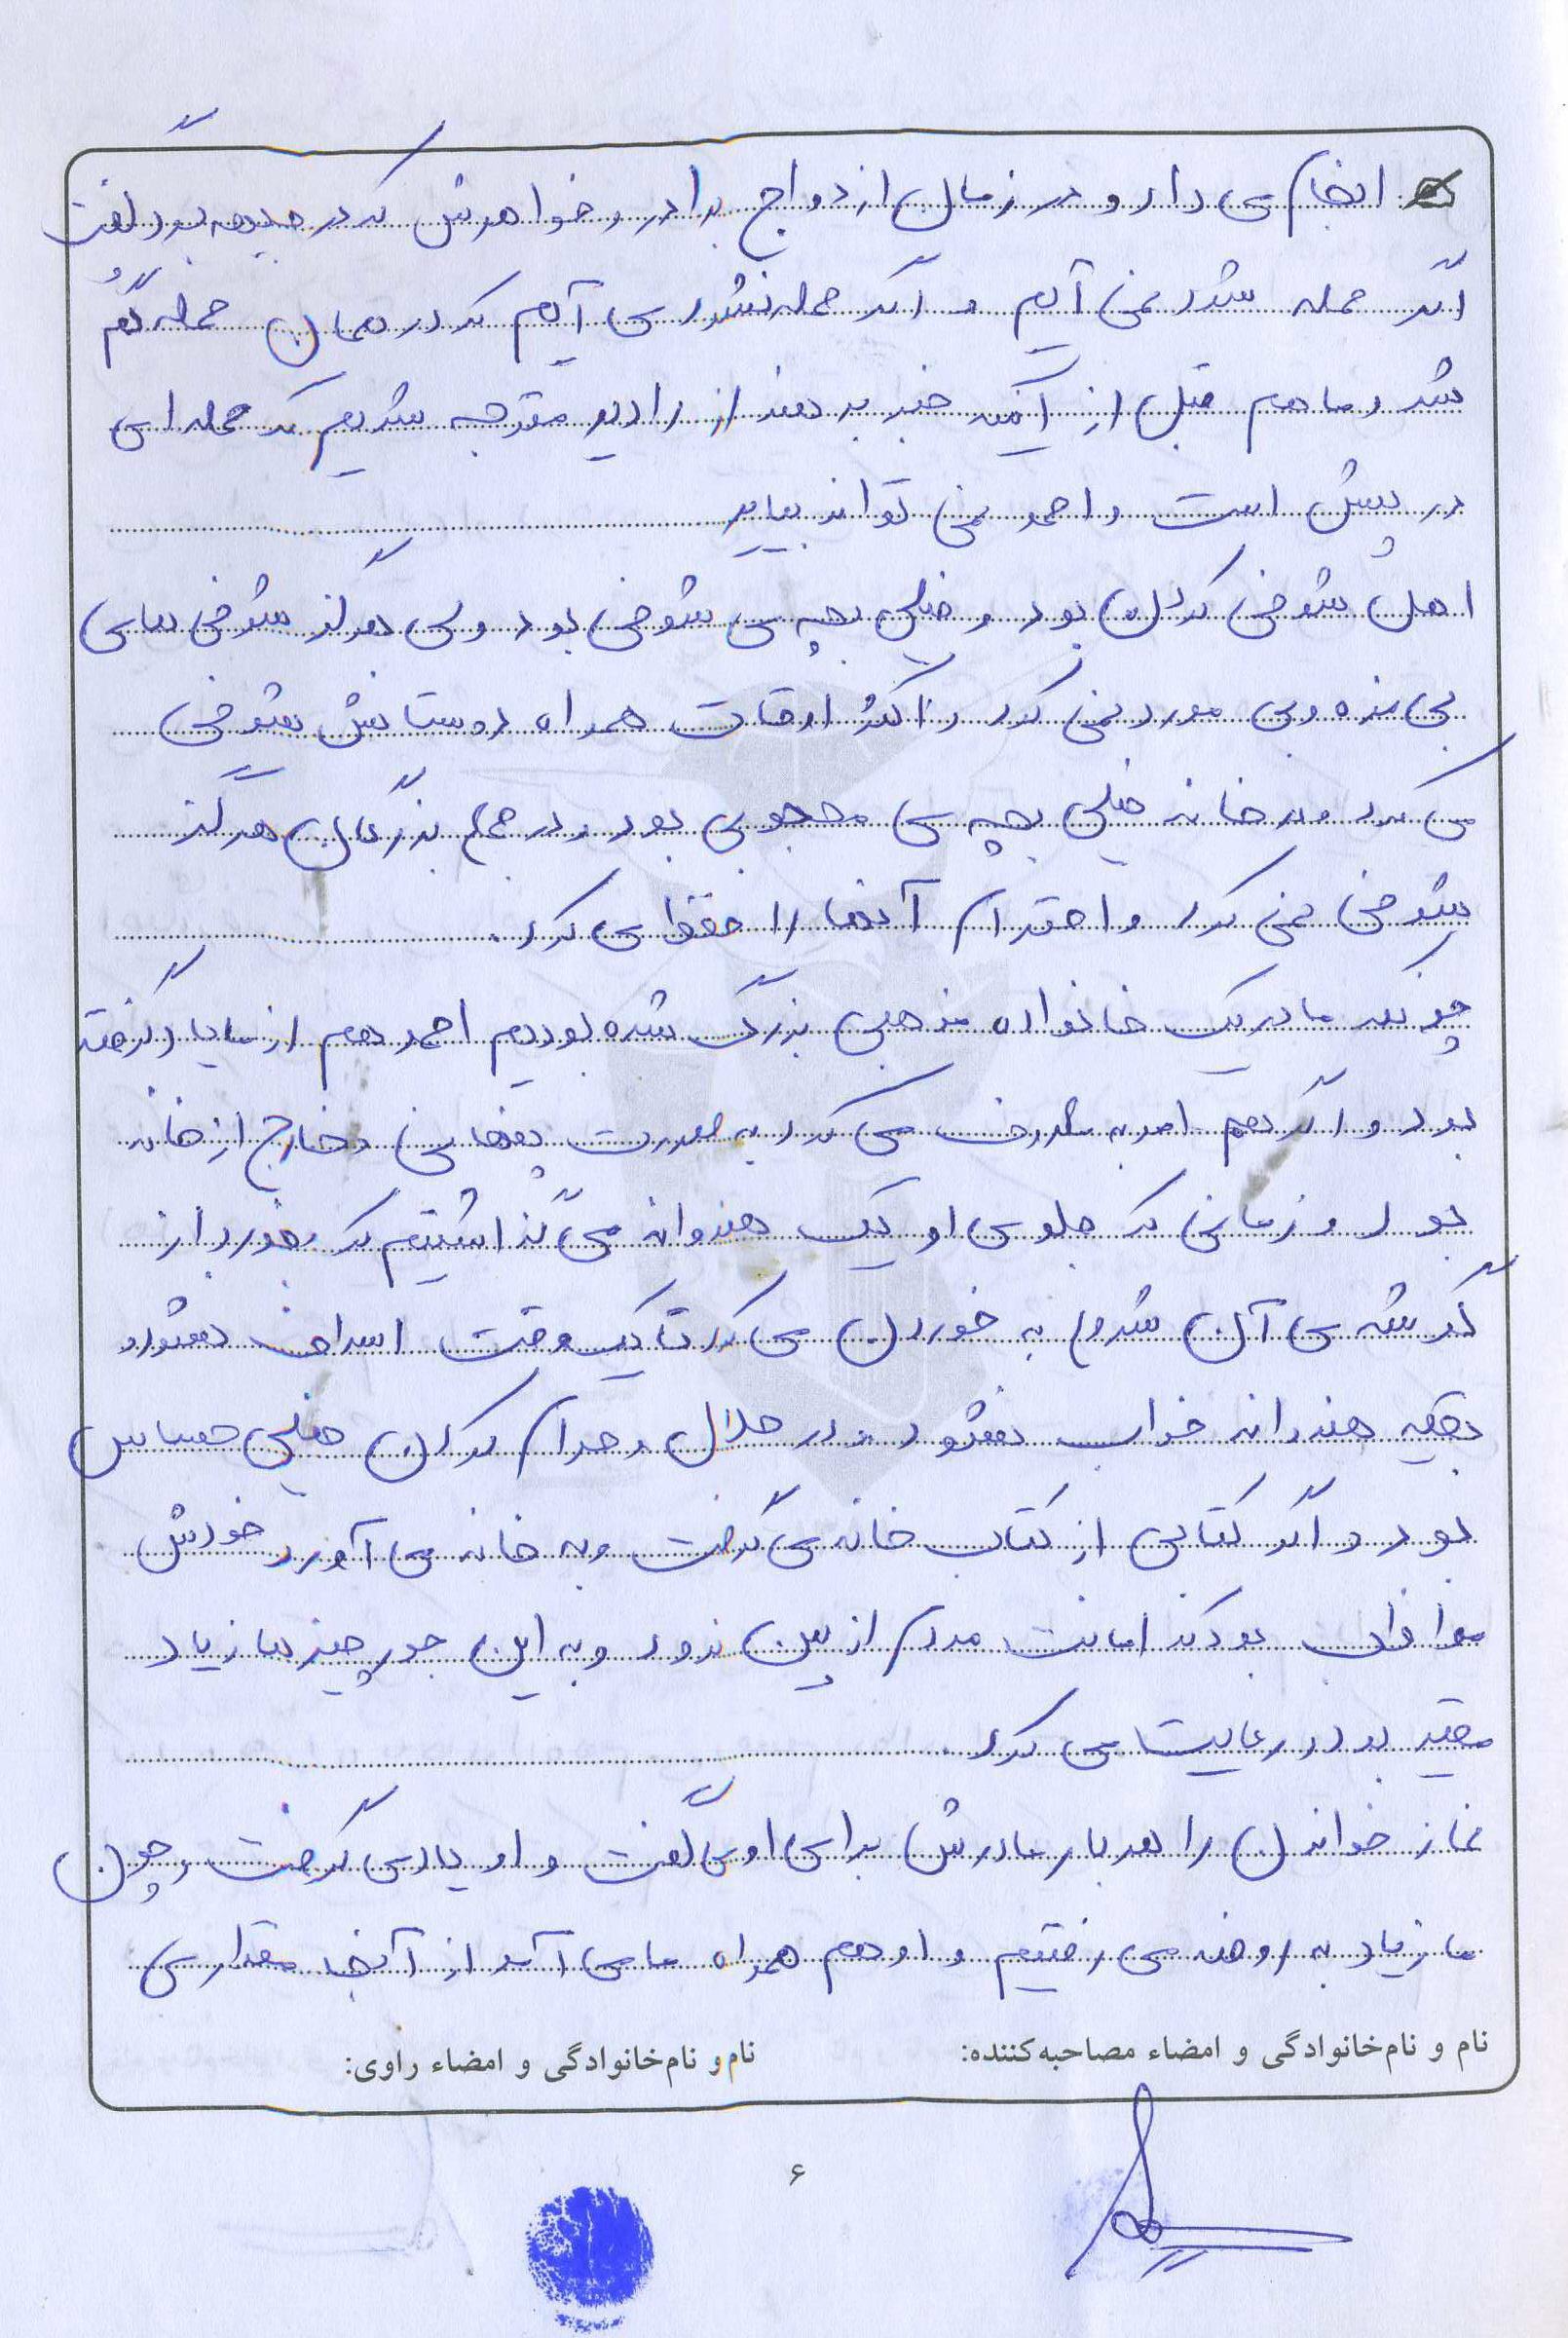 انجام می داد و در زمان ازدواج برادر و خواهرش که در جبهه بود گفت
اگر حمله شد نمی آیم و اگر حمله نشد می آیم که در همان حمله گم
شد و ما هم قبل از آنکه خبر بدهند از رادیو متوجه شدیم که حمله ای
در پیش است و احمد نمی تواند بیاید
اهل شوخی کردن بود و خیلی بچه ی شوخی بود ولی هرگز شوخی های
بی مزه و بی مورد نمی کرد و اکثر اوقات همراه دوستانش شوخی
می کرد و در خانه خیلی بچه ی محجوبی بود و در جمع بزرگان هرگز
شوخی نمی کرد و احترام آنها را حفظ می کرد.
چونکه ما در یک خانواده مذهبی بزرگ شده بودیم احمد هم از ما یاد گرفته
بود و اگر هم امر به معروف می کرد به صورت پنهانی و خارج از خانه
بود و زمانی که جلوی او یک هندوانه می گذاشتیم که بخورد از
گوشه ی آن شروع به خوردن می کرد تا یک وقت اسراف نشود و
بقیه هندوانه خراب نشود و در حلال و حرام کردن خیلی حساس
بود و اگر کتابی از کتاب خانه می گرفت و به خانه می آورد خودش
مواظب بود که امانت مردم از بین نرود و به این جور چیزها زیاد
مقید بود و رعایت می کرد.
نماز خواندن را هر بار مادرش برای او می گفت و او یاد می گرفت و چون
ما زیاد به روضه می رفتیم و او هم همراه ما می آمد از آنجا مقداری
نام و نام‌خانوادگی و امضاء مصاحبه‌کننده: نام و نام‌خانوادگی و امضاء راوی:
۶